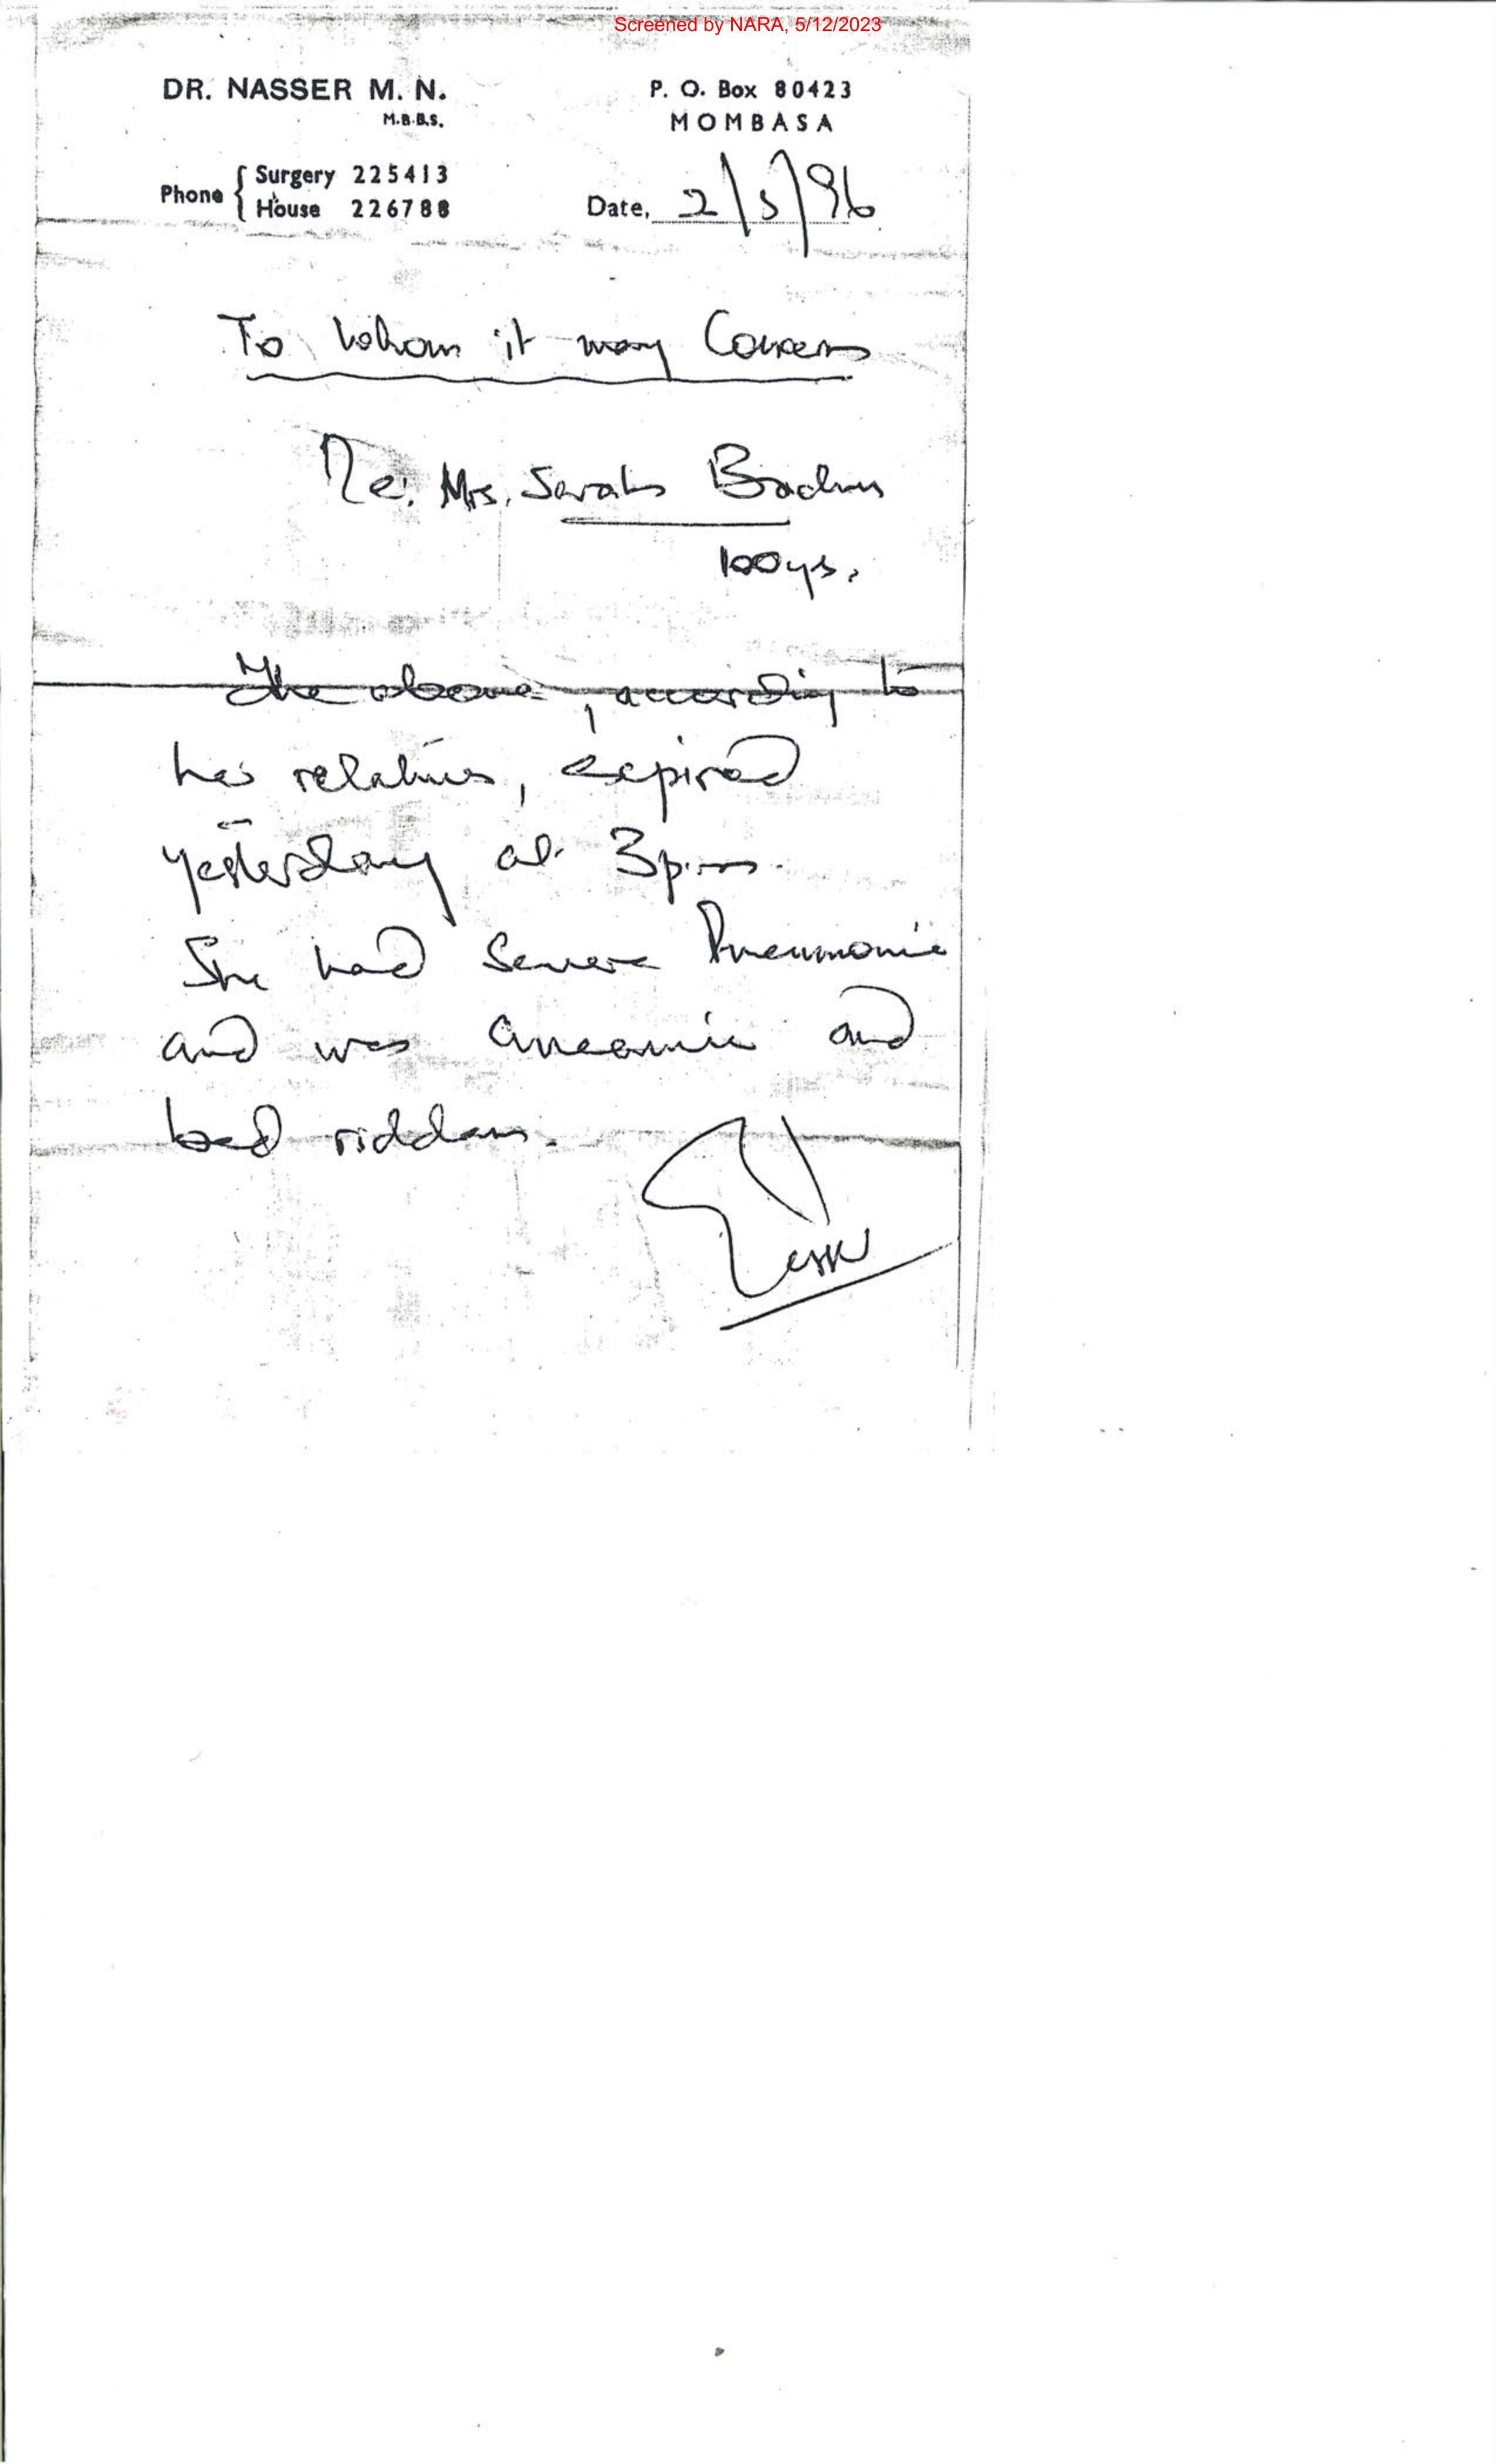 Screened by NARA, 5/12/2023
DR. NASSER M. N.
M.B.B.S.
P. O. Box 80423
MOMBASA
Phone { Surgery 225413
House 226788
Date, 2/5/96
To Whom it may Concern
Re: Mrs. Sarah
100ys.
The above, according to
her relatives, expired
yesterday at 3p.m.
She had Severe Pneumonia
and was aneamic and
bed ridden.